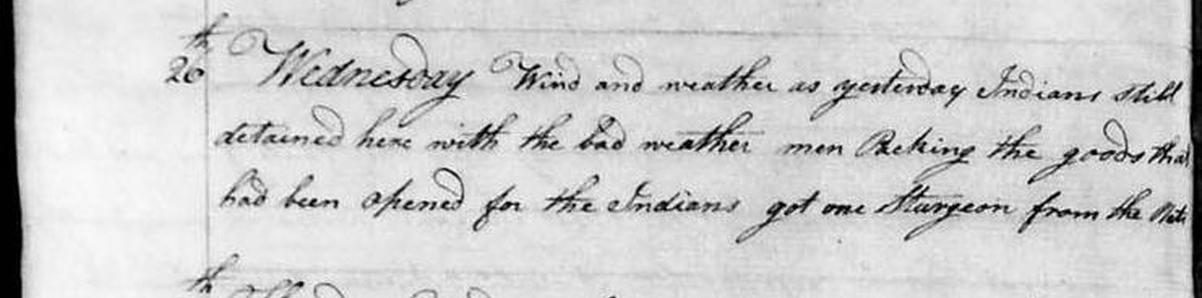 26th Wednesday Wind and weather as yesterday Indians still
detained here with the bad weather men Packing the goods that
had been opened for the Indians got one Sturgeon from the Nets
th